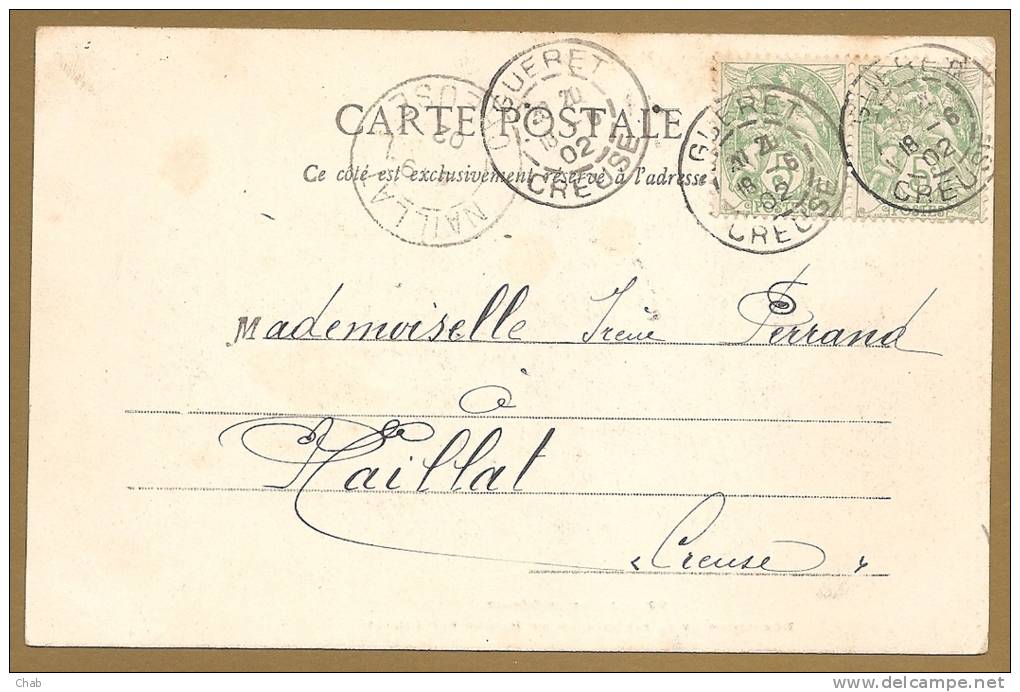 CARTE POSTALE
Ce côté est exclusivement réservé à l'adresse
GUERET
18 -6
02
CREUSE
GUERET
18 -6
02
CREUSE
GUERET
18 -6
02
CREUSE
NAILLA
02
5
POSTES
POSTES
Mademoiselle Irène Perrand
à
Naillat
« Creuse »
Chab
delcampe.net